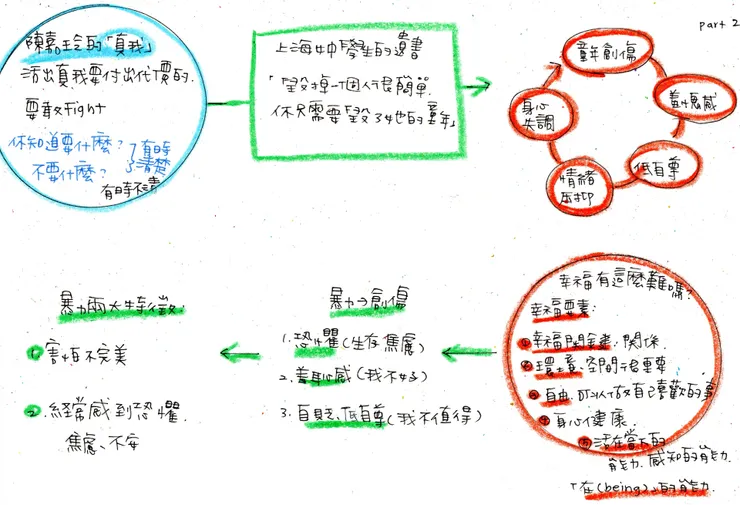 part 2
陳嘉玲的「真我」
活出真我要付出代價的.
要敢Fight
你知道要什麼?
不要什麼?
有時清楚
有時不清
上海中學生的遺書
「毀掉一個人很簡單.
你只需要毀了他的童年」
童年創傷
羞愧感
低自尊
情緒壓抑
身心失調
幸福有這麼難嗎?
幸福要素:
①幸福關鍵:關係.
②環境、空間很重要
③自由.可以做自己喜歡的事
④身心健康.
⑤活在當下的
能力.感知的能力.
「在(being)」的能力.
暴力→創傷
1.恐懼(生存焦慮)
2.羞恥感(我不好)
3.自貶、低自尊(我不值得)
暴力兩大特徵:
1.害怕不完美
2.經常感到恐懼.
焦慮、不安